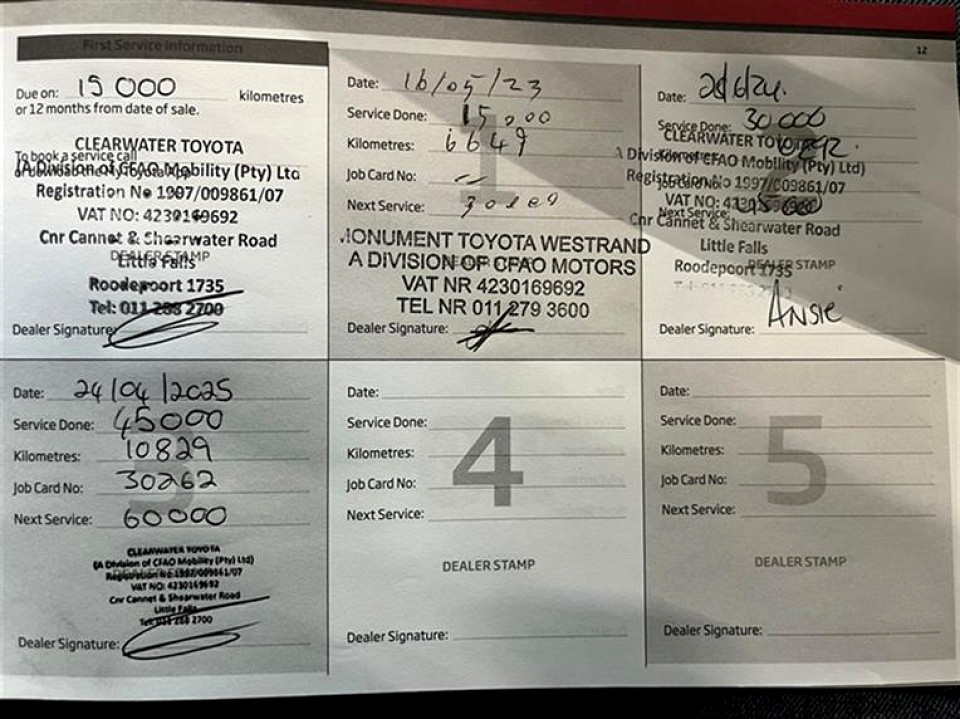 12
First Service Information
Due on: 15 000 kilometres
or 12 months from date of sale.
To book a service call
CLEARWATER TOYOTA
(A Division of CFAO Mobility (Pty) Ltd
Registration No 1907/009861/07
VAT NO: 4230169692
Cnr Cannet & Shearwater Road
Little Falls
DEALER STAMP
Roodepoort 1735
Tel: 011 288 2700
Dealer Signature:
1
Date: 16/05/23
Service Done: 15,000
Kilometres: 6649
Job Card No:
Next Service:
MONUMENT TOYOTA WESTRAND
A DIVISION OF CFAO MOTORS
VAT NR 4230169692
TEL NR 011 279 3600
Dealer Signature:
Date:
Service Done: 30 000
CLEARWATER TOYOTA
A Division of CFAO Mobility (Pty) Ltd)
Kilometres:
Registration No 1997/009861/07
Job Card No:
VAT NO:
Next Service: 45 000
Cnr Cannet & Shearwater Road
Little Falls
DEALER STAMP
Roodepoort 1735
Dealer Signature: ANSIE
3
Date: 24/04/2025
Service Done: 45000
Kilometres: 10829
Job Card No: 30262
Next Service: 60000
CLEARWATER TOYOTA
(A Division of CFAO Mobility (Pty) Ltd)
Registration No 1997/009861/07
VAT NO: 4230169692
Cnr Cannet & Shearwater Road
Little Falls
Tel: 011 288 2700
Dealer Signature:
4
Date:
Service Done:
Kilometres:
Job Card No:
Next Service:
DEALER STAMP
Dealer Signature:
5
Date:
Service Done:
Kilometres:
Job Card No:
Next Service:
DEALER STAMP
Dealer Signature: